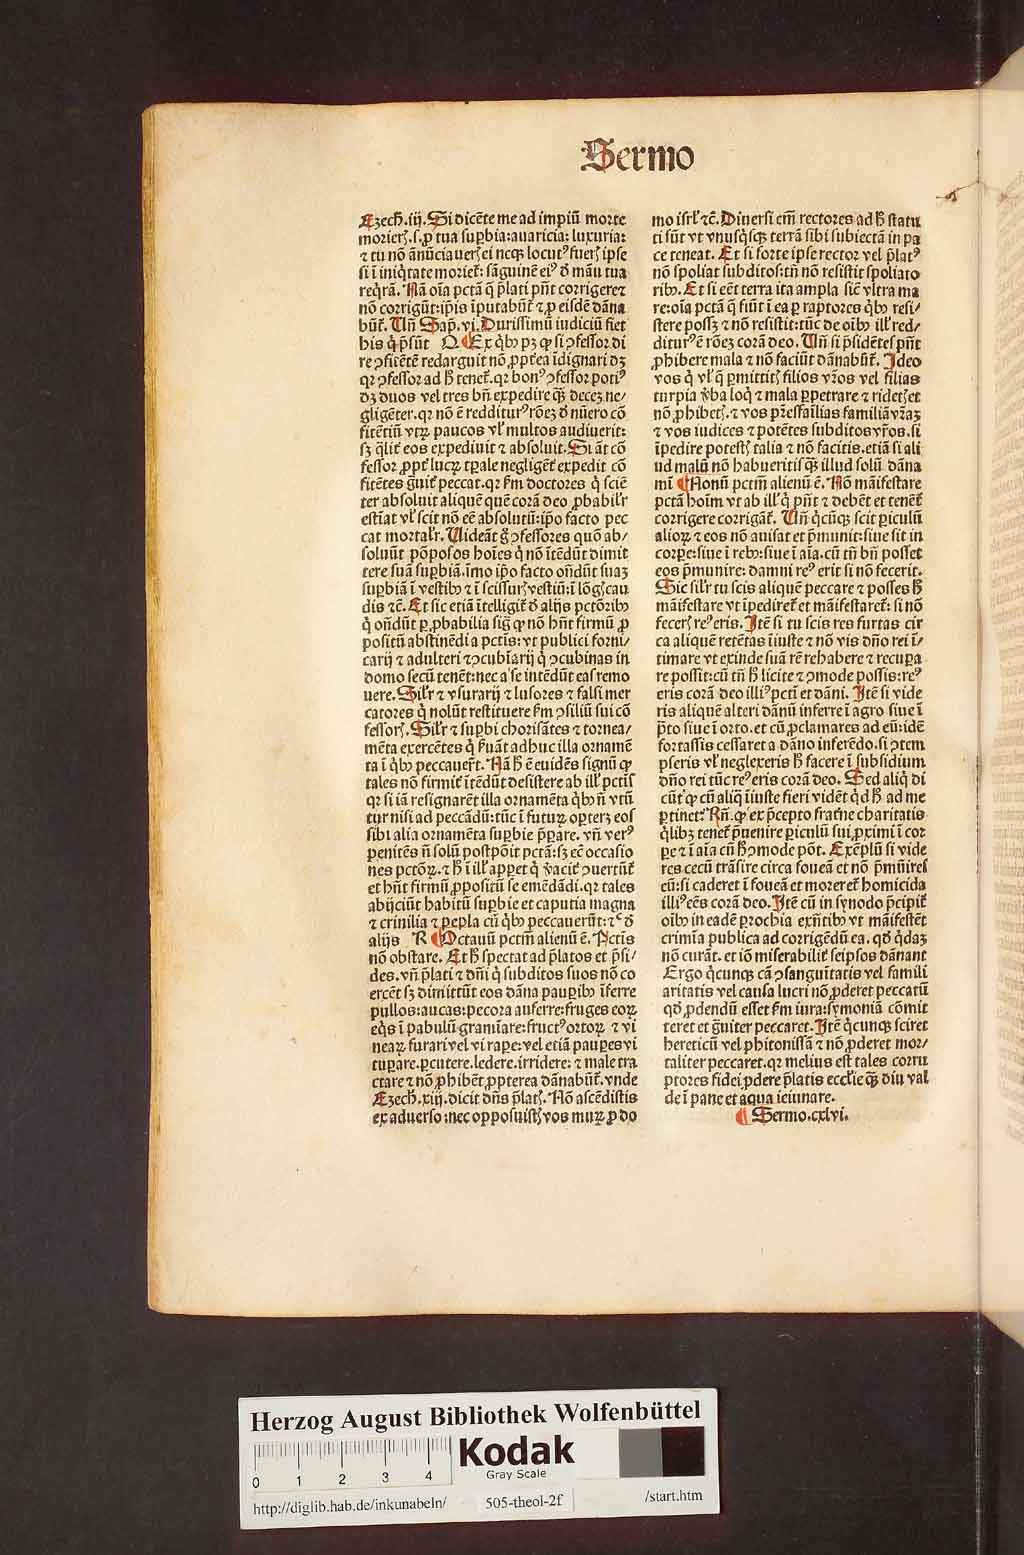 Sermo
Ezech̄. iij. Si dicēte me ad impiū morte
morierꝭ. s. ꝓ tua suꝑbia: auaricia: luxuria:
⁊ tu nō ānūciauerꝭ ei neqꝫ locutꝰ fuerꝭ ipse
si ī iniq̇tate morieť: sāguinē eiꝰ ď māu tua
req̇rā. Nā oīa pctā q̄ p̄lati pn̄t corrigere ⁊
nō corrigūt: ip̄is īputabūť ⁊ ꝓ eisdē dāna
būť. Un̄ Sap̄. vi. Durissimū iudiciū fiet
his q̇ p̄sūt Q ¶ Ex q̇bꝰ pꝫ ꝙ si ꝯfessor di
re ꝯfitētē redarguit nō ꝓpt̄ea īdignari dꝫ
qꝛ ꝯfessor ad h̄ teneť. qꝛ bonꝰ ꝯfessor potiꝰ
dꝫ duos vel tres bn̄ expedire qꝫ̄ decez ne/
gligēter. qꝛ nō ē redditurꝰ rōez ď nūero cō
fitētiū vtꝝ paucos vľ multos audiuerit:
sꝫ q̄liť eos expediuit ⁊ absoluit. Si āt cō
fessor ꝓpť lucꝝ tꝑale negligēť expedit cō
fitētes ḡuiť peccat. qꝛ ẜm doctores q̇ sciē
ter absoluit aliquē quē corā deo ꝓbabiľr
estīat vľ scit nō eē absolutū: ip̄o facto pec
cat mortaľr. Uideāt ḡ ꝯfessores quō ab/
soluūt pōposos hoīes q̇ nō ītēdūt dimit
tere suā suꝑbiā. īmo ip̄o facto on̄dūt suaz
suꝑbiā ī vestibꝰ ⁊ ī scissurꝭ vestiū: ī lōgꝭ cau
dis ⁊c̄. Et sic etiā ītelligiť ď alijs pctōribꝰ
q̇ on̄dūt ꝑ ꝓbabilia siḡ ꝙ nō hn̄t firmū ꝓ
positū abstinēdi a pctīs: vt publici forni/
carij ⁊ adulteri ⁊ ꝯcubīarij q̇ ꝯcubinas in
domo secū tenēt: nec a se intēdūt eas remo
uere. Siľr ⁊ vsurarij ⁊ lusores ⁊ falsi mer
catores q̇ nolūt restituere ẜm ꝯsiliū sui cō
fessorꝭ. Siľr ⁊ suꝑbi chorisātes ⁊ tornea/
mēta exercētes q̇ ẜuāt adhuc illa ornamē
ta ī q̇bꝰ peccauer̄t. Nā h̄ ē euidēs signū ꝙ
tales nō firmiť ītēdūt desistere ab ilľ pctīs
qꝛ si iā resignarēt illa ornamēta q̇bꝰ n̄ vtū
tur nisi ad peccādū: tūc ī futuꝝ oꝑterꝫ eos
sibi alia ornamēta suꝑbie p̄ꝑare. vn̄ verꝰ
penitēs n̄ solū postpōit pctā: sꝫ eč occasio
nes pctōꝝ. ⁊ h̄ ī ilľ appet q̇ v̇aciť ꝯuertūť
et hn̄t firmū ꝓpositū se emēdādi. qꝛ tales
abijciūt habitū suꝑbie et caputia magna
⁊ crinilia ⁊ pepla cū q̇bꝰ peccauerūt: ⁊c̄ ď
alijs R ¶ Octauū pctm̄ alienū ē. Pctīs
nō obstare. Et h̄ spectat ad p̄latos et p̄si/
des. vn̄ p̄lati ⁊ dn̄i q̇ subditos suos nō co
ercēt sꝫ dimittūt eos dāna pauꝑibꝰ īferre
pullos: aucas: pecora auferre: fruges eoꝝ
eq̇s ī pabulū gramīare: fructꝰ ortoꝝ ⁊ vi
neaꝝ furari vel vi raꝑe: vel etiā pauꝑes vi
tuꝑare. ꝑcutere. ledere. irridere: ⁊ male tra
ctare ⁊ nō ꝓhibēt ꝓpterea dānabūť. vnde
Ezech. xiij. dicit dn̄s p̄latꝭ. Nō ascēdistis
ex aduerso: nec opposuistꝭ vos muꝝ ꝓ do
mo isrľ ⁊c̄. Diuersi em̄ rectores ad h̄ statu
ti sūt vt vnusq̇sqꝫ terrā sibi subiectā in pa
ce teneat. Et si forte ipse rector vel p̄latꝰ
nō spoliat subditos: tn̄ nō resistit spoliato
ribꝰ. Et si eēt terra ita ampla sič vltra ma
re: oīa pctā q̄ fiūt ī ea ꝑ raptores q̇bꝰ resi/
stere possꝫ ⁊ nō resistit: tūc de oībꝰ ilľ red/
diturꝰ ē rōez corā deo. Un̄ si p̄sidētes pn̄t
ꝓhibere mala ⁊ nō faciūt dānabūť. Ideo
vos q̇ vľ q̄ ꝑmittitꝭ filios vr̄os vel filias
turpia v̇ba loq̇ ⁊ mala ꝑpetrare ⁊ ridetꝭ et
nō ꝓhibetꝭ. ⁊ vos pr̄esfāilias familiā vr̄aꝫ
⁊ vos iudices ⁊ potētes subditos vr̄os. si
īpedire potestꝭ talia ⁊ nō facitis. etiā si ali
ud malū nō habueritis qꝫ̄ illud solū dāna
mī ¶ Nonū pctm̄ alienū ē. Nō māifestare
pctā hoīm vt ab ilľ q̇ pn̄t ⁊ debēt et tenēť
corrigere corrigāť. Un̄ q̇cūqꝫ scit ꝑiculū
alioꝝ ⁊ eos nō auisat et p̄munit: siue sit in
corꝑe: siue ī rebꝰ: siue ī aīa. cū tn̄ bn̄ posset
eos p̄munire: damni reꝰ erit si nō fecerit.
Sic siľr tu scis aliquē peccare ⁊ posses h̄
māifestare vt īpedireť et māifestareť: si nō
fecerꝭ reꝰ eris. Itē si tu scis res furtas cir
ca aliquē retētas īiuste ⁊ nō vis dn̄o rei ī/
timare vt exinde suā rē rehabere ⁊ recuꝑa
re possit: cū tn̄ h̄ licite ⁊ ꝯmode possis: reꝰ
eris corā deo illiꝰ pctī et dāni. Itē si vide
ris aliquē alteri dānū inferre ī agro siue ī
p̄to siue ī orto. et cū ꝓclamares ad eū: idē
fortassis cessaret a dāno inferēdo. si ꝯtem
pseris vľ neglexeris h̄ facere ī subsidium
dn̄o rei tūc reꝰ eris corā deo. Sed aliq̇ di
cūt ꝙ cū aliq̇ īiuste fieri vidēt q̇d h̄ ad me
ꝑtinet: Rn̄. ꝙ ex p̄cepto frat̄ne charitatis
q̇libꝫ teneť p̄uenire ꝑiculū sui ꝓximi ī cor
ꝑe ⁊ ī aīa cū h̄ ꝯmode pōt. Exēplū si vide
res cecū trāsire circa foueā et nō p̄mūires
eū: si caderet ī foueā et moreret̄ homicida
illiꝰ eēs corā deo. Itē cū in synodo p̄cipiť
oībꝰ in eadē ꝑochia exn̄tibꝰ vt māifestēt
crimīa publica ad corrigēdū ea. qď q̇daꝫ
nō curāt. et iō miserabiliť seipsos dānant
Ergo q̇cunqꝫ cā ꝯsanguītatis vel famili
aritatis vel causa lucri nō ꝓderet peccatū
qď ꝓdendū esset ẜm iura: symoniā cōmit
teret et ḡuiter peccaret. Itē q̇cunqꝫ sciret
hereticū vel phitonissā ⁊ nō ꝓderet mor/
taliter peccaret. qꝛ melius est tales corru
ptores fidei ꝓdere p̄latis ecclīe qꝫ̄ diu val
de ī pane et aqua ieiunare.
¶ Sermo. cxlvi.
Herzog August Bibliothek Wolfenbüttel
Kodak
Gray Scale
0 1 2 3 4
http://diglib.hab.de/inkunabeln/ 505-theol-2f /start.htm